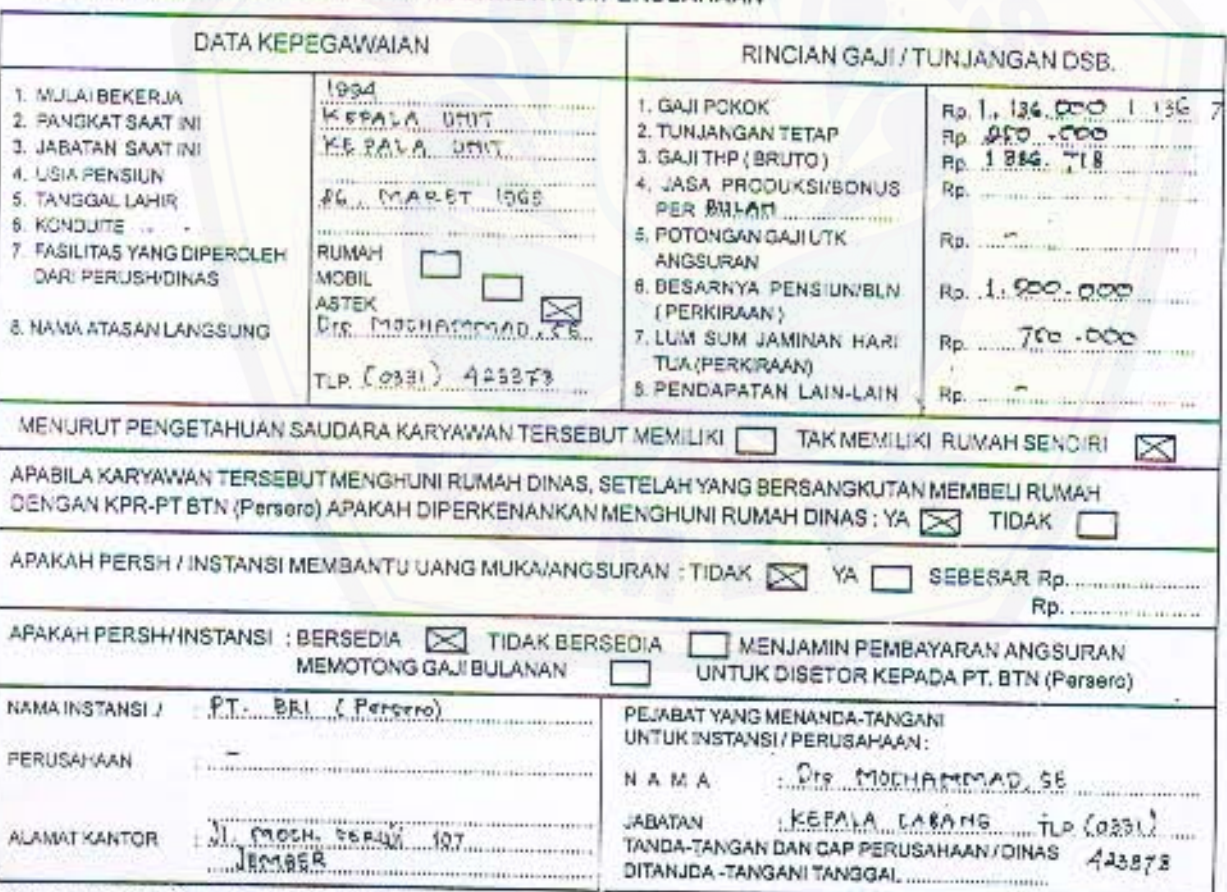 DATA KEPEGAWAIAN
1. MULAI BEKERJA 1994
2. PANGKAT SAAT INI KEPALA UNIT
3. JABATAN SAAT INI KEPALA UNIT
4. USIA PENSIUN
5. TANGGAL LAHIR 26 MARET
6. KONDUITE
7. FASILITAS YANG DIPEROLEH DARI PERUSH/DINAS
RUMAH
MOBIL
ASTEK
8. NAMA ATASAN LANGSUNG Drs MOCHAMMAD, SE
TLP. (0331)
RINCIAN GAJI / TUNJANGAN DSB.
1. GAJI POKOK Rp. 1.136.000 1.136 7
2. TUNJANGAN TETAP Rp.
3. GAJI THP ( BRUTO ) Rp.
4. JASA PRODUKSI/BONUS Rp.
PER BULAN
5. POTONGAN GAJI UTK Rp. -
ANGSURAN
6. BESARNYA PENSIUN/BLN Rp.
( PERKIRAAN )
7. LUM SUM JAMINAN HARI Rp.
TUA (PERKIRAAN)
8. PENDAPATAN LAIN-LAIN Rp. -
MENURUT PENGETAHUAN SAUDARA KARYAWAN TERSEBUT MEMILIKI TAK MEMILIKI RUMAH SENDIRI
APABILA KARYAWAN TERSEBUT MENGHUNI RUMAH DINAS, SETELAH YANG BERSANGKUTAN MEMBELI RUMAH
DENGAN KPR-PT BTN (Persero) APAKAH DIPERKENANKAN MENGHUNI RUMAH DINAS : YA TIDAK
APAKAH PERSH / INSTANSI MEMBANTU UANG MUKA/ANGSURAN : TIDAK YA SEBESAR Rp.
Rp.
APAKAH PERSH/INSTANSI : BERSEDIA TIDAK BERSEDIA MENJAMIN PEMBAYARAN ANGSURAN
MEMOTONG GAJI BULANAN UNTUK DISETOR KEPADA PT. BTN (Persero)
NAMA INSTANSI / : PT. BRI (Persero)
PERUSAHAAN : -
ALAMAT KANTOR : Jl. MOCH. 107
JEMBER
PEJABAT YANG MENANDA-TANGANI
UNTUK INSTANSI / PERUSAHAAN :
N A M A : Drs MOCHAMMAD, SE
JABATAN : KEPALA CABANG TLP (0331)
TANDA-TANGAN DAN CAP PERUSAHAAN / DINAS
DITANDA -TANGANI TANGGAL